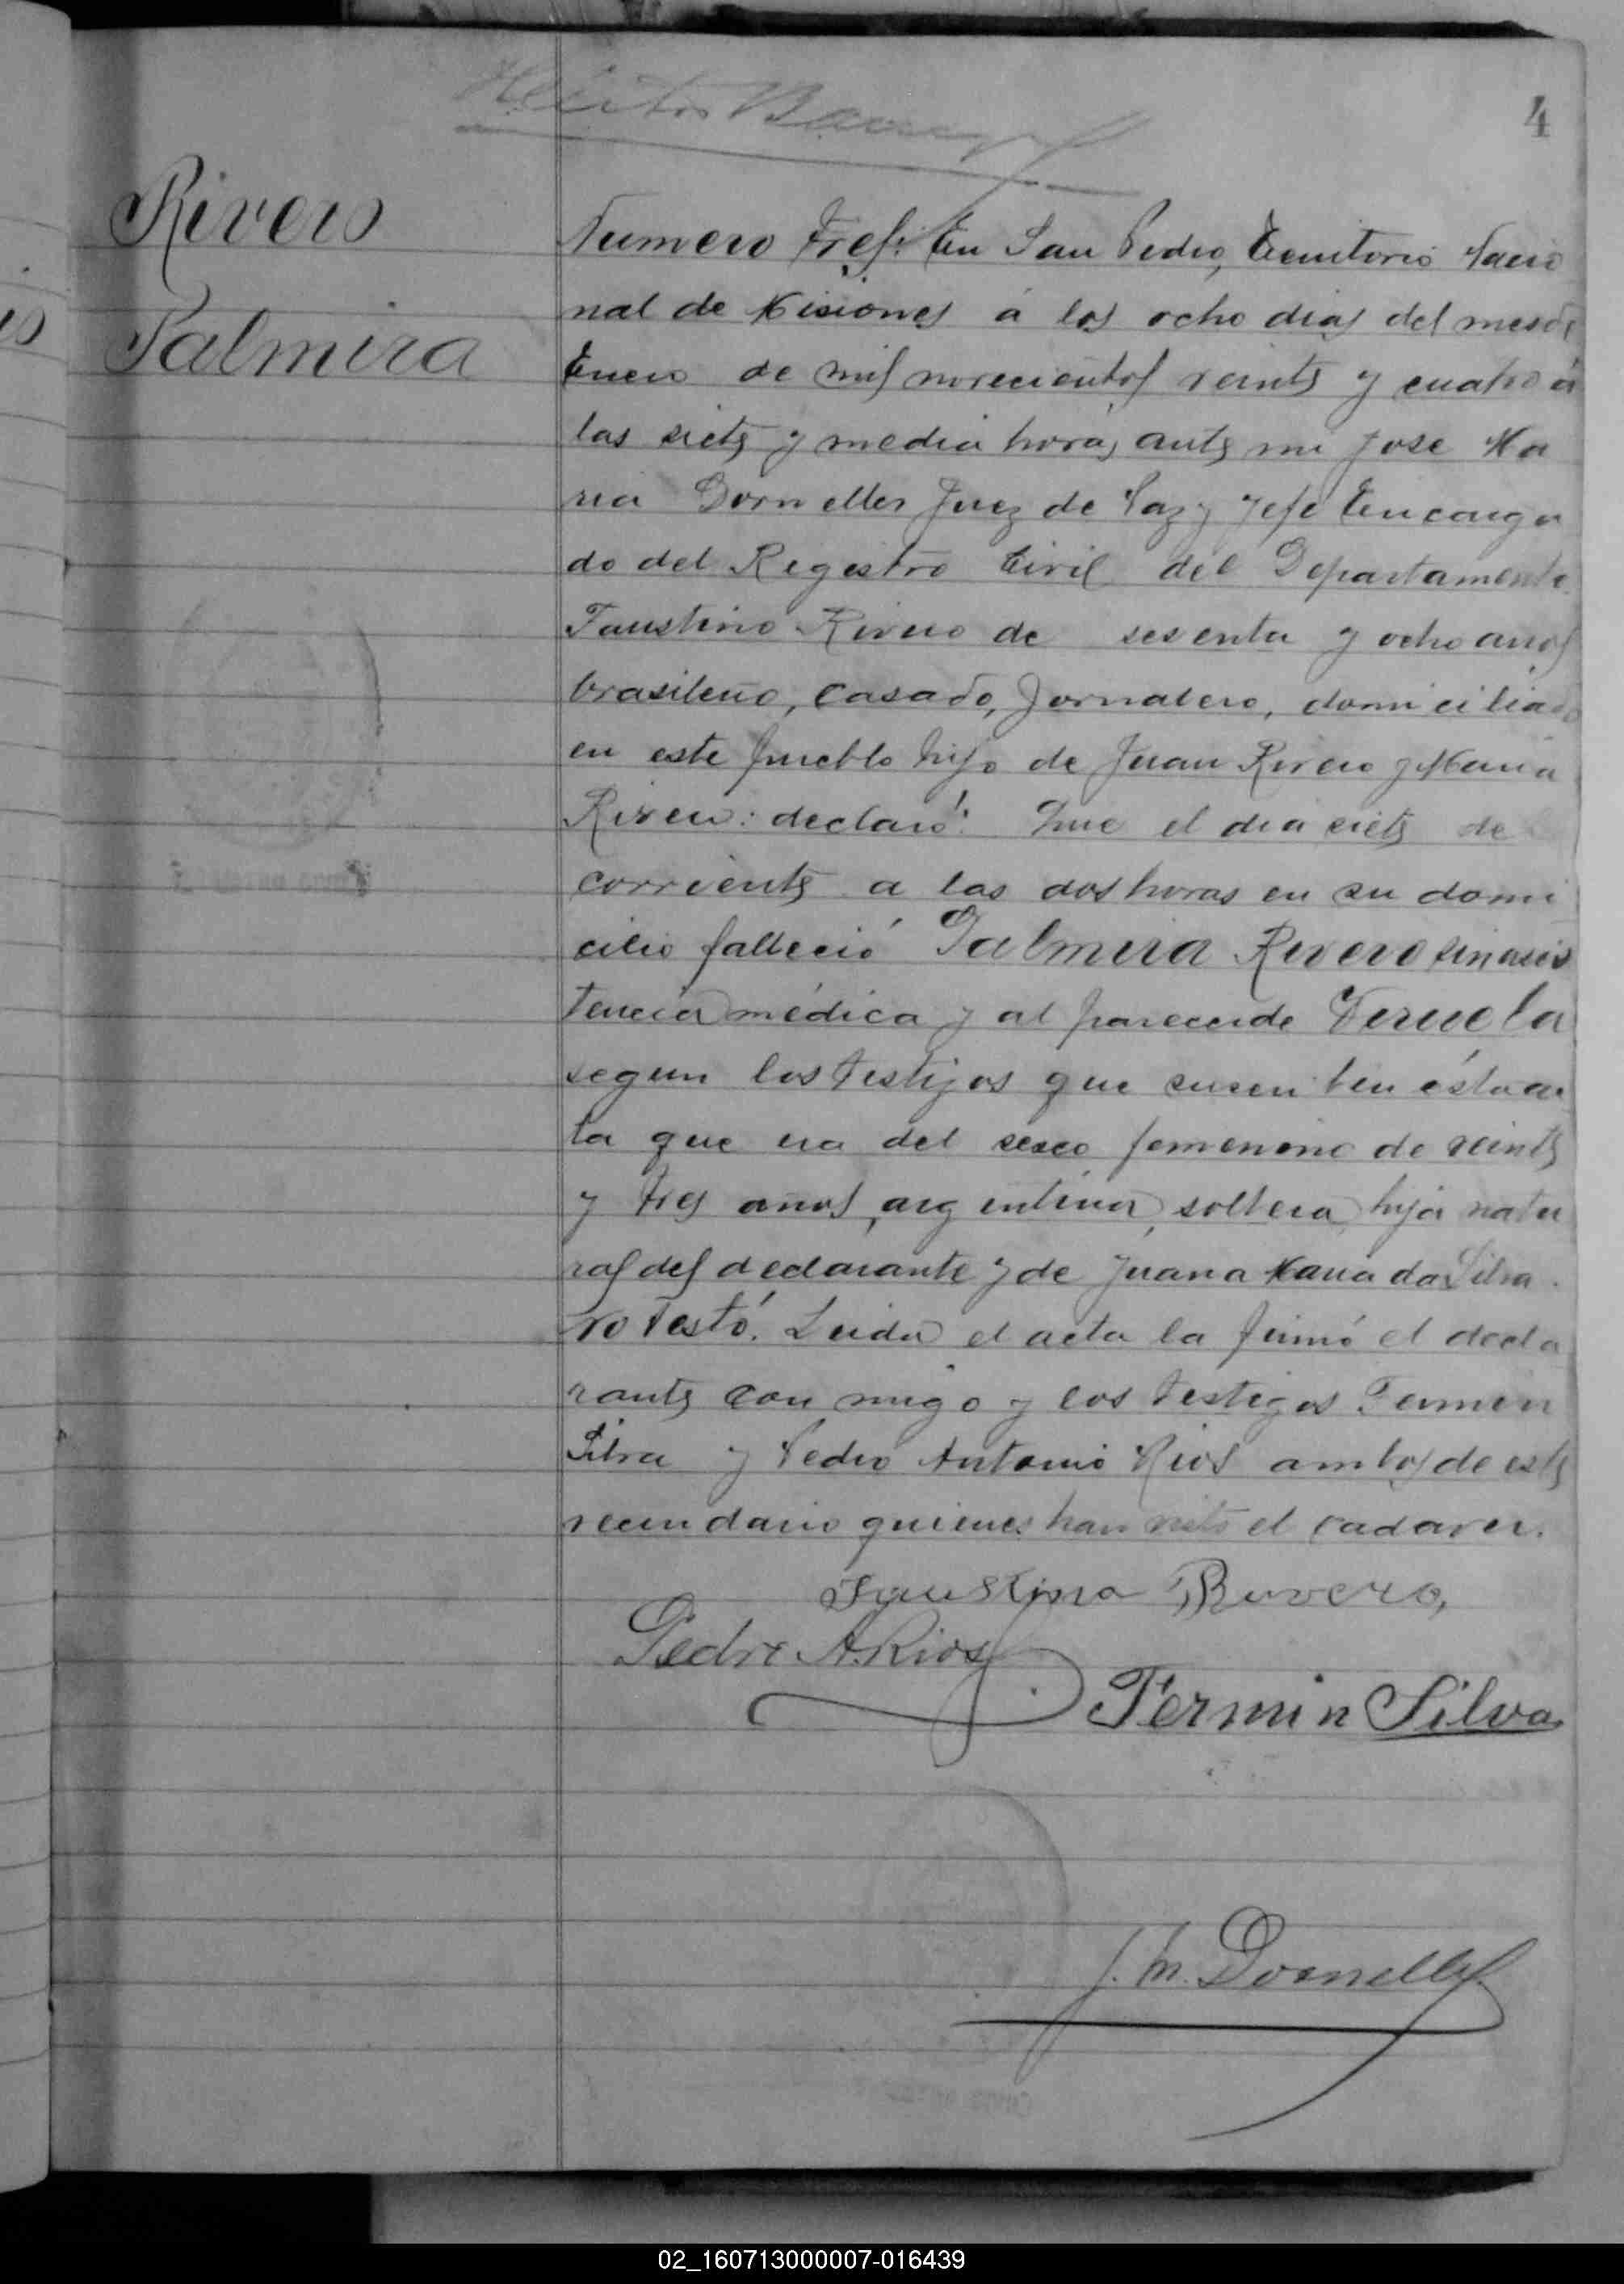 4
Rivero
Palmira
Numero Tres: En San Pedro, Territorio Nacio
nal de Misiones á los ocho dias del mes de
Enero de mil novecientos veinte y cuatro á
las siete y media horas, ante mi Jose Ma
ria Dornelles Juez de Paz y Jefe Encarga
do del Registro Civil del Departamento
Faustino Rivero de sesenta y ocho años
brasileño, casado, Jornalero, domiciliado
en este pueblo hijo de Juan Rivero y Maria
Rivero: declaró: Que el dia siete de
corriente a las dos horas en su domi
cilio falleció Palmira Rivero sin asis
tencia médica y al parecer de Viruela
segun los testigos que suscriben ésta ac
ta que era del sexo femenino de veinte
y tres años, argentina, soltera, hija natu
ral del declarante y de Juana Maria da Silva.
No Testó. Leida el acta la firmó el decla
rante con migo y los testigos Fermin
Silva y Pedro Antonio Rios ambos de este
vecindario quienes han visto el cadaver.
Faustino Rivero,
Pedro A. Rios
Fermin Silva
J. M. Dornelles
02_160713000007-016439